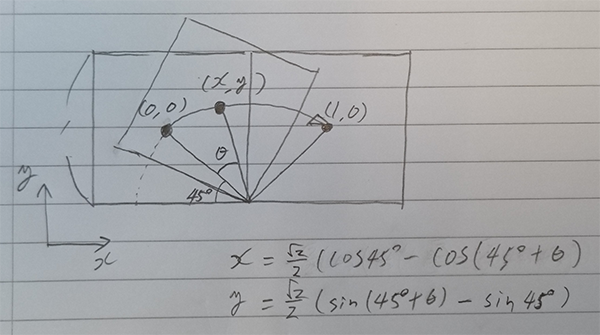 (x, y)
(0, 0)
(1, 0)
θ
45°
y
x
x = √2/2 (cos45° - cos(45° + θ)
y = √2/2 (sin(45° + θ) - sin45°)